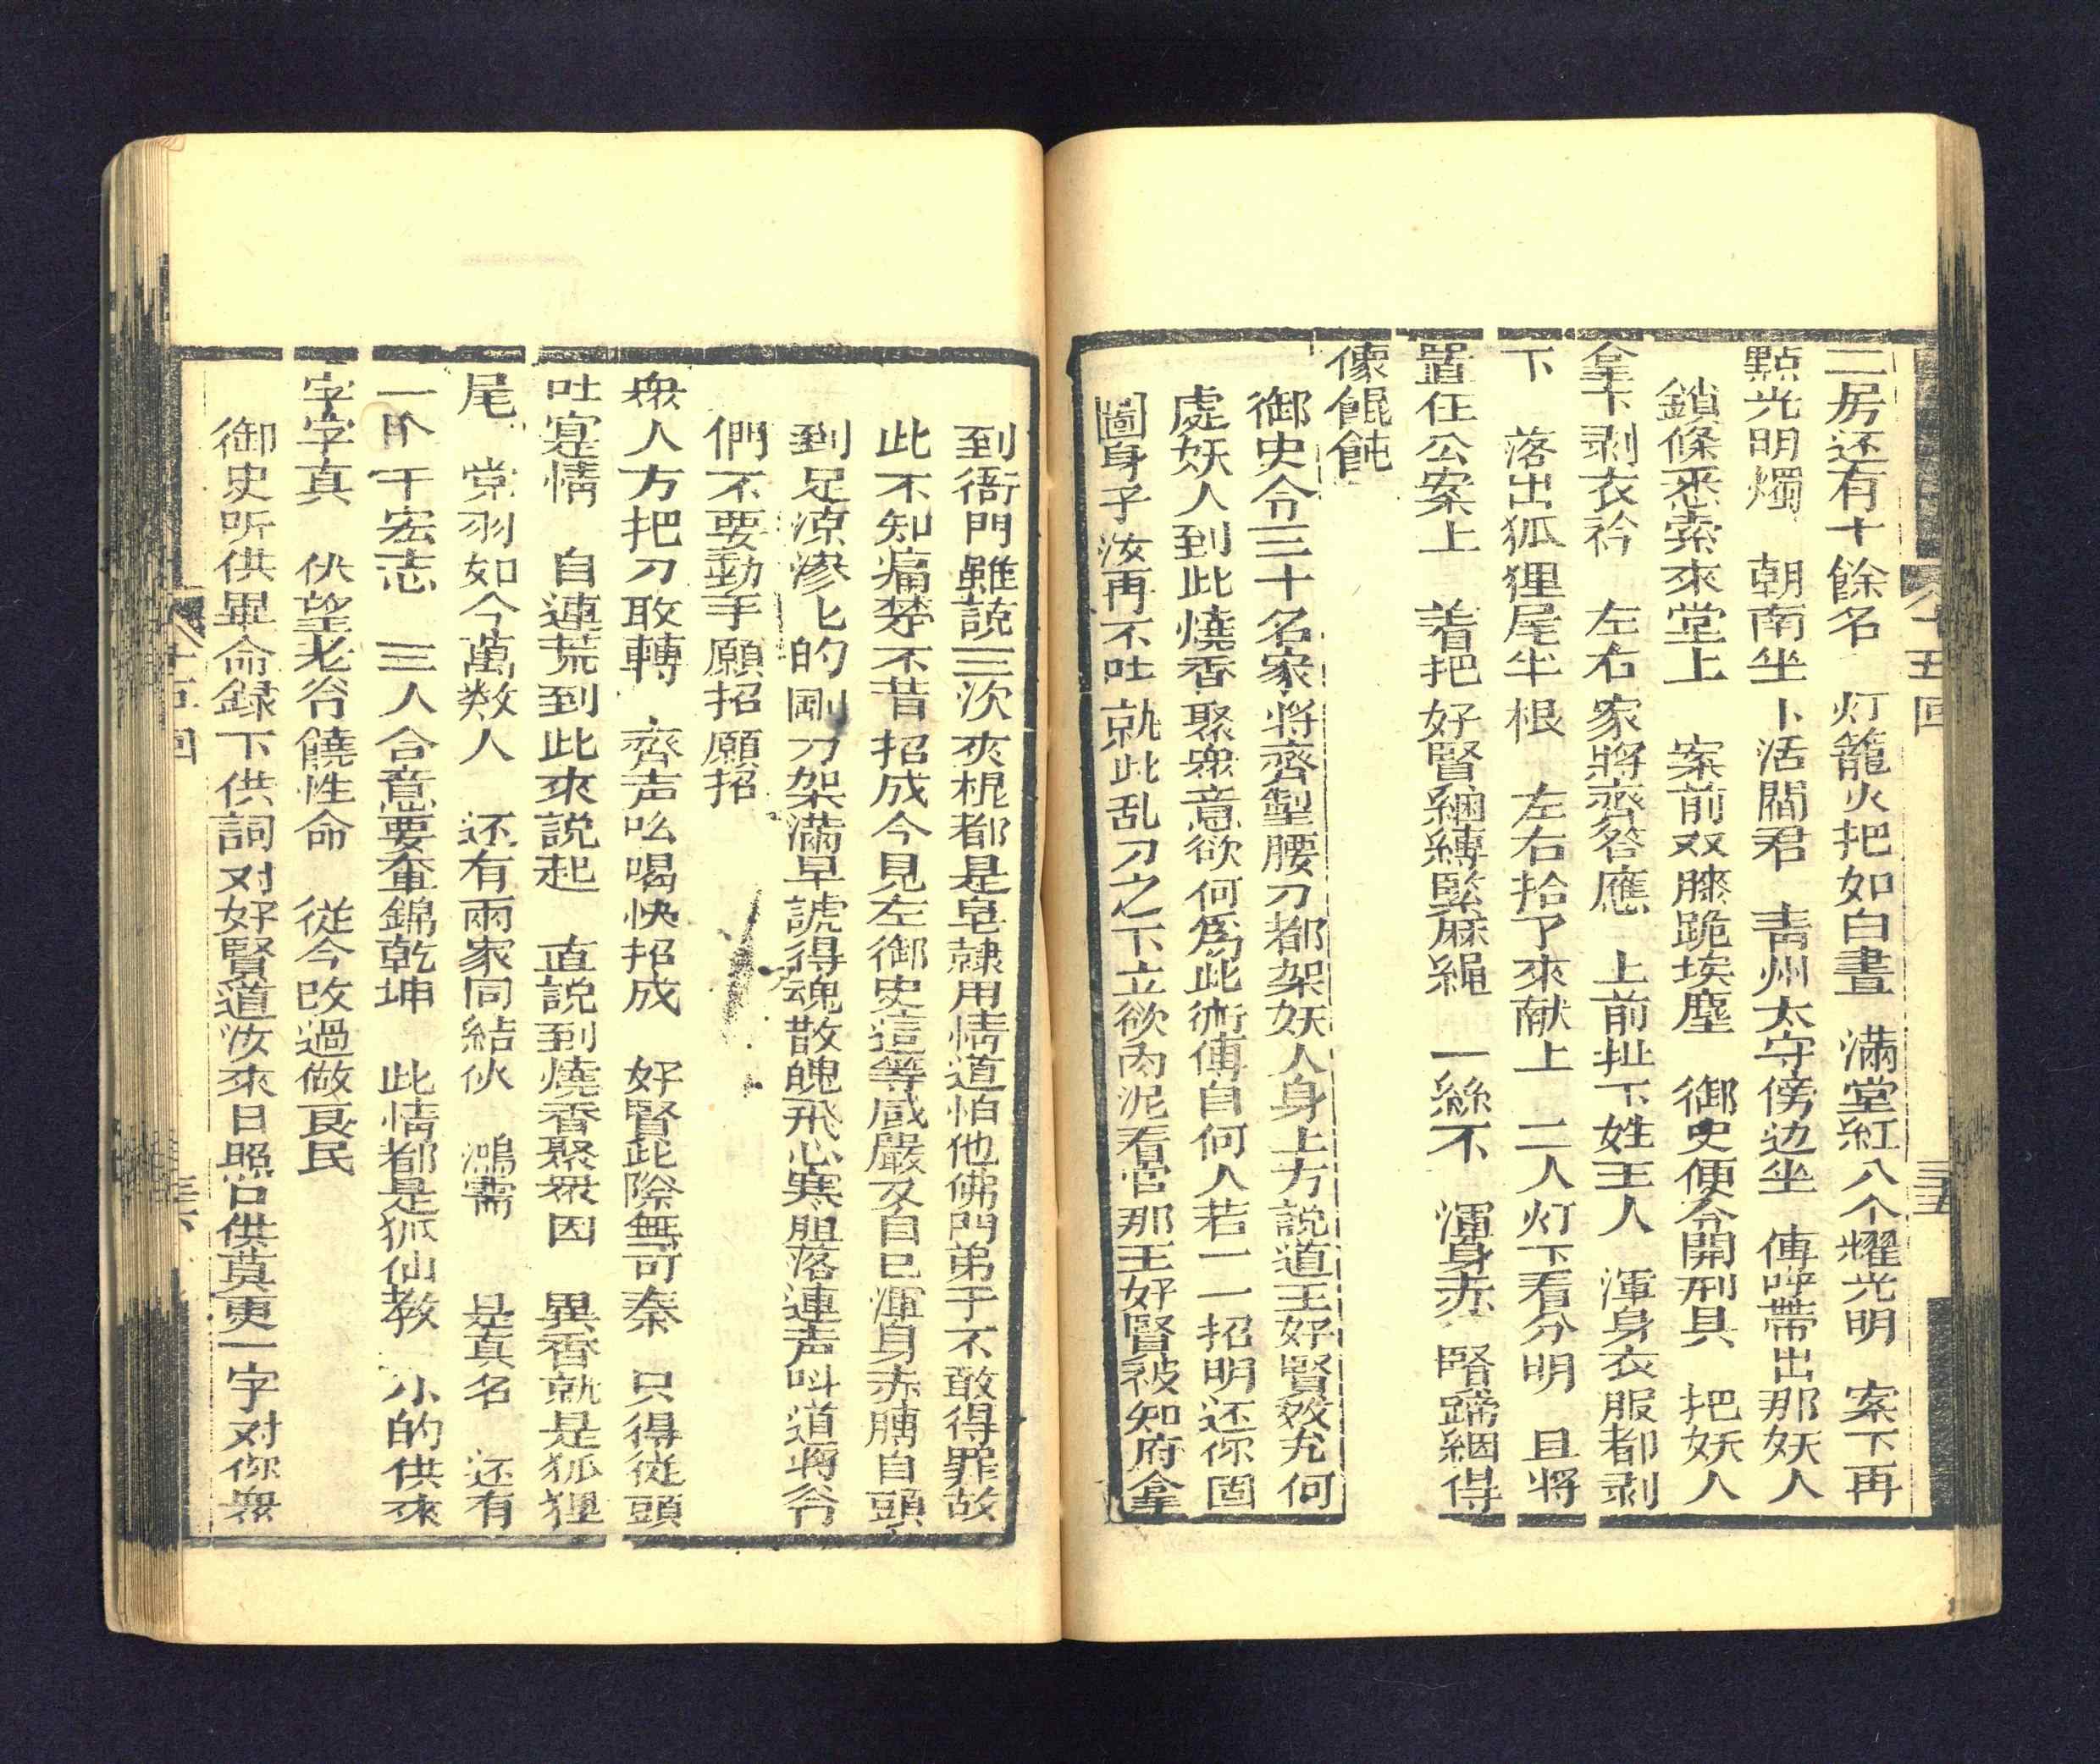 二房还有十餘名　灯籠火把如白晝　滿堂紅八个耀光明　案下再
點光明燭　朝南坐卜活閻君　青州太守傍边坐　傳呼帶出那妖人
鎖條悉索來堂上　案前双膝跪埃塵　御史便令開刑具　把妖人
拿下剥衣衿　左右家將齊答應　上前扯下姓王人　渾身衣服都剥
下　落出狐狸尾半根　左右拾了來献上　二人灯下看分明　且將
置在公案上　着把好賢綑縛緊麻繩　一絲不　渾身赤　腎蹄綑得
像餛飩
御史令三十名家將齊掣腰刀都架妖人身上方説道王好賢效尤何
處妖人到此燒香聚衆意欲何爲此術傳自何人若一一招明还你固
圖身子汝再不吐就此乱刀之下立欲肉泥看官那王好賢被知府拿
十五回
三十五
到衙門雖説三次夾棍都是皂隸用情道怕他佛門弟子不敢得罪故
此不知痛楚不昔招成今見左御史這等威嚴又自已渾身赤膊自頭
到足凉滲匕的剛刀架滿早諕得魂散魄飛心寒胆落連声叫道將爷
們不要動手願招願招
衆人方把刀敢轉　齊声吆喝快招成　好賢此際無可奈　只得從頭
吐寔情　自連荒到此來説起　直説到燒香聚衆因　異香就是狐狸
尾　党羽如今萬数人　还有兩家同結伙　鴻需　是真名　还有
一个于宏志　三人合意要奪錦乾坤　此情都是狐仙教　小的供來
字字真　伏望老爷饒性命　從今改過做良民
御史听供畢命録下供詞对好賢道汝來日照口供莫更一字对你衆
十五回
三六